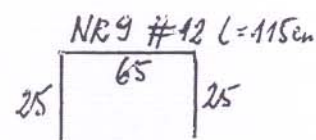 NR9 #12 l=115cm
65
25 25